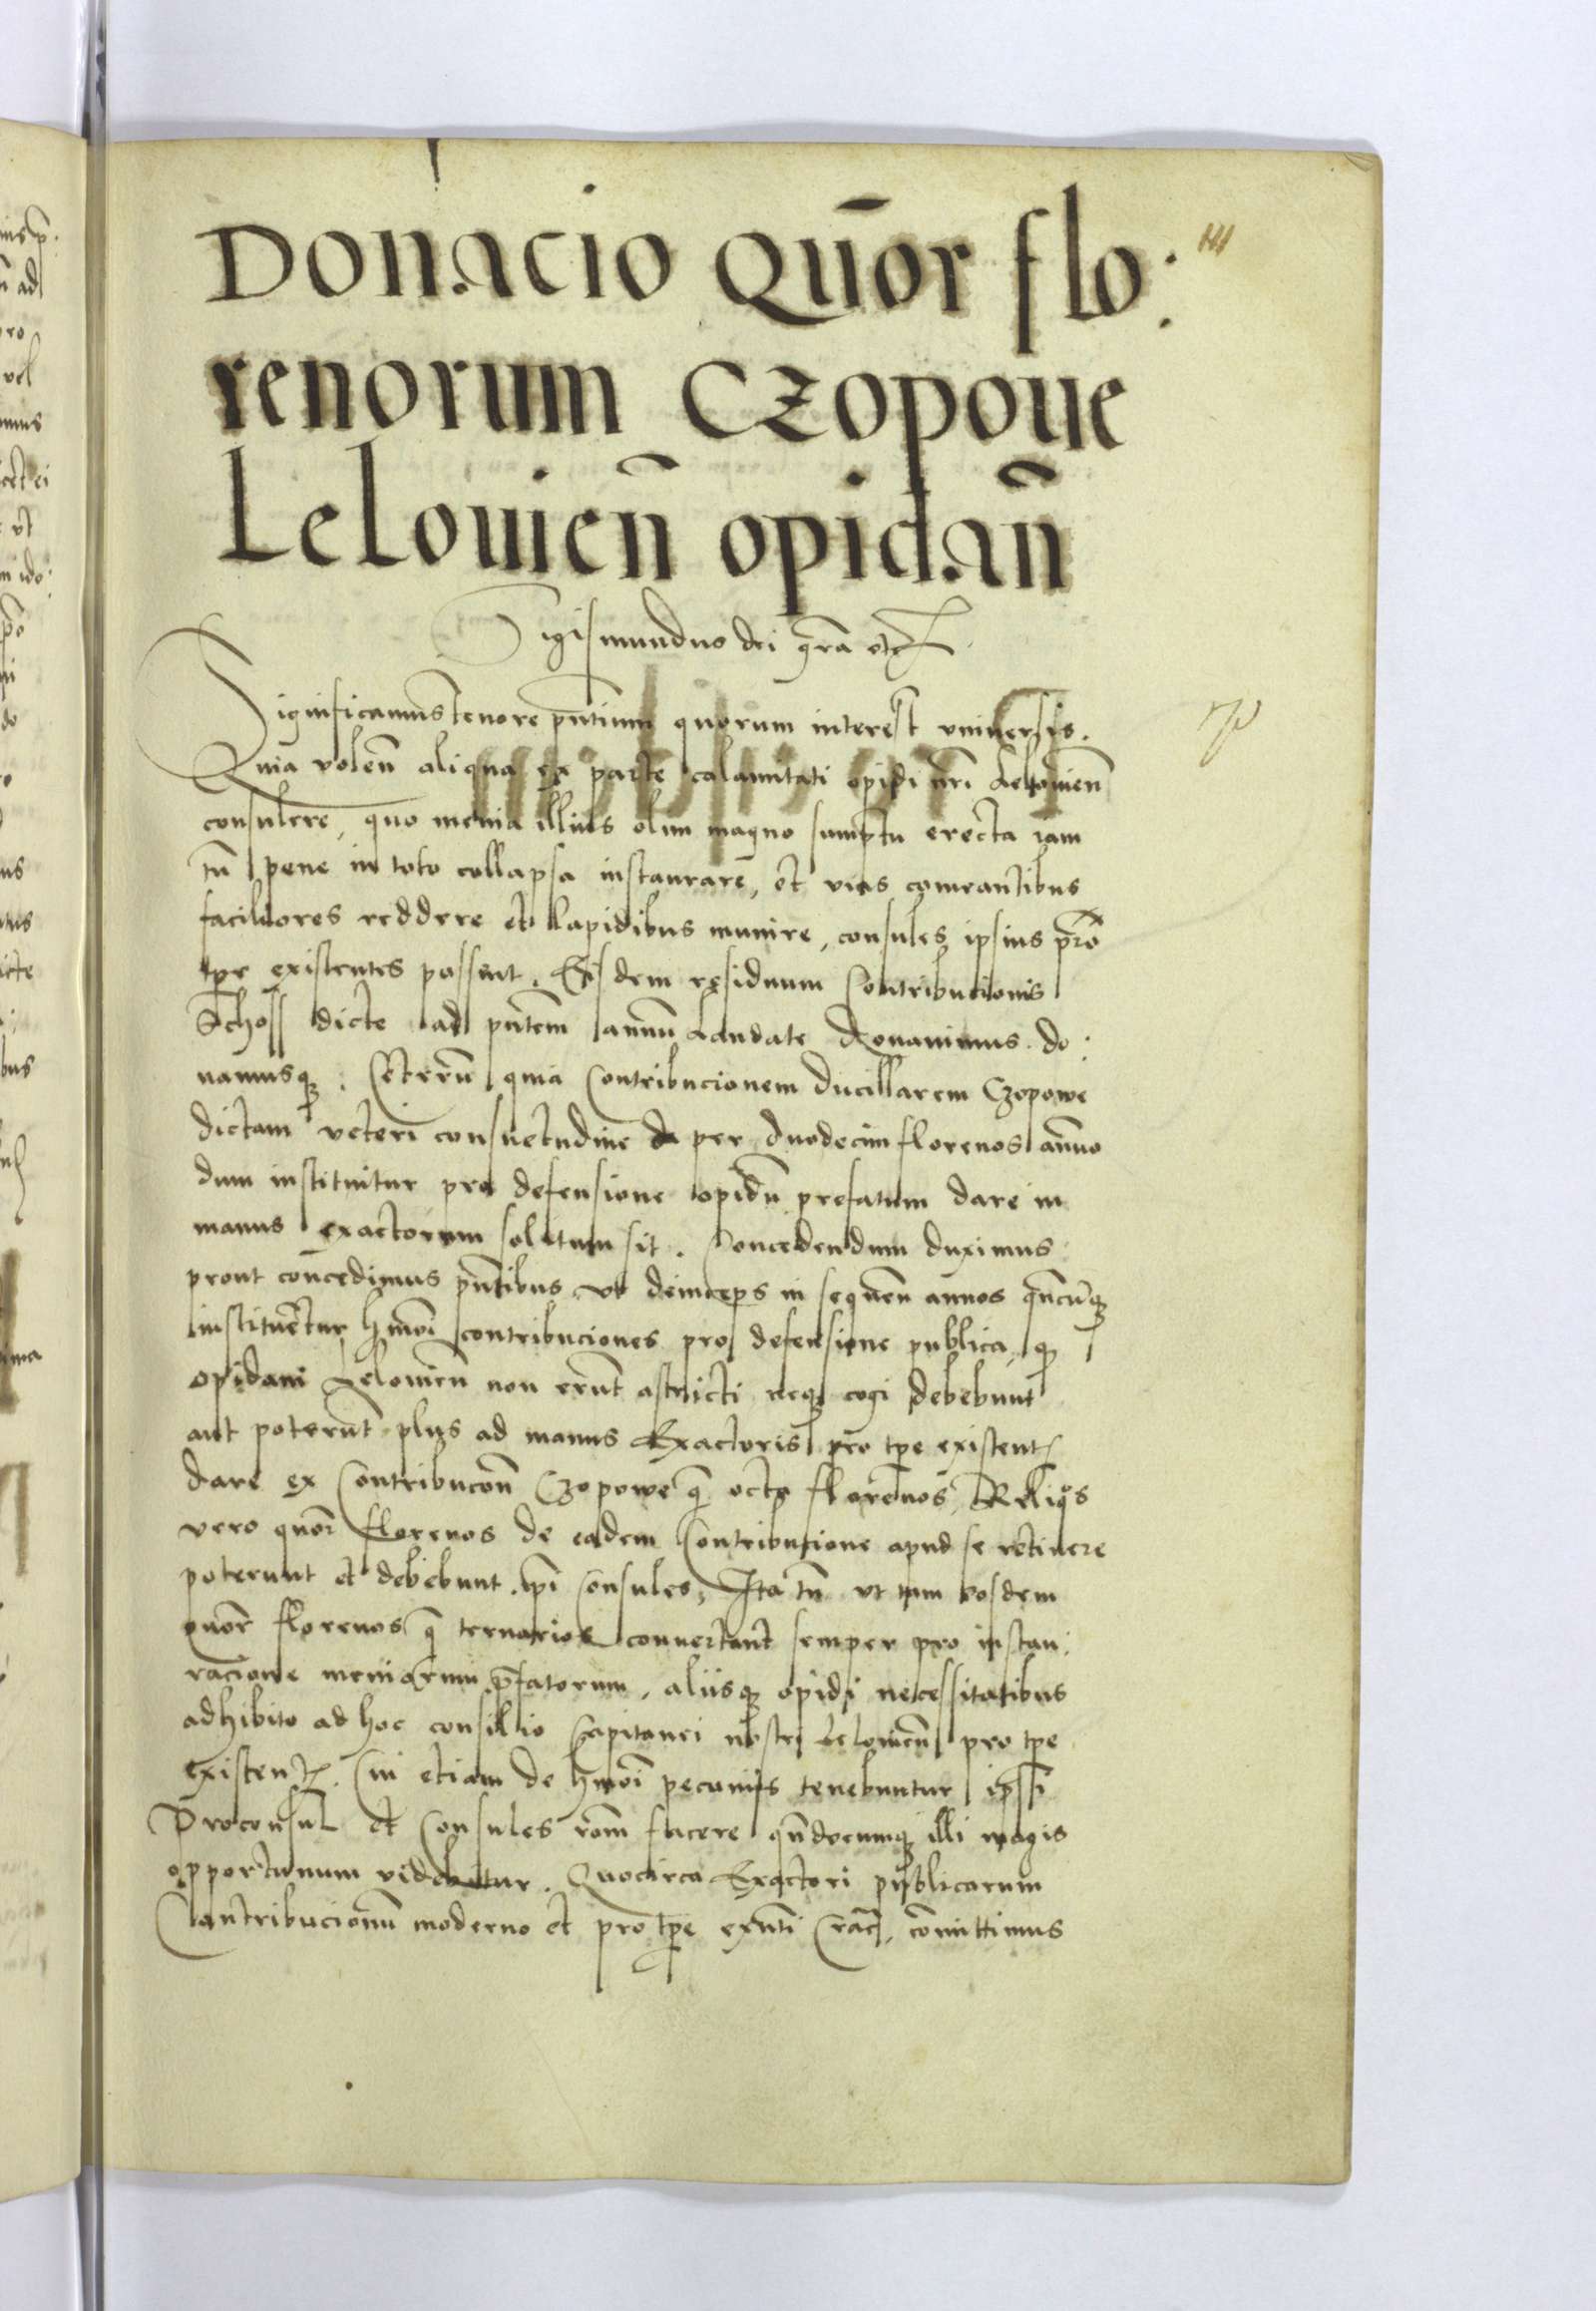 Donacio quōr flo:
renorum czopoue
Lelouien̄ opidan̄
Sigismundus dei grā etc
Significamus tenore pn̄tium quorum interest vniuersis.
Quia volen̄ aliqua ex parte calamitati opidi nr̄i Lelouien̄
consulere, quo menia illius olim magno sumptu erecta iam
tn̄ pene in toto collapsa instaurare, et vias comeantibus
faciliores reddere et lapidibus munire, consules ipsius pro
tp̄e existentes possint. Eisdem residuum Contribucionis
Schoss dicte ad pn̄tem annū Laudate donauimus do:
namusq3. Ceterū quia Contribucionem ducillarem Czopowe
dictam veteri consuetudine per duodecim florenos annuo
dum instituitur pro defensione opidū prefatum dare in
manus exactorum solitum sit. Concedendum duximus
prout concedimus pn̄tibus vt deinceps in sequen̄ annos qn̄cūq3
instituētur hm̄oi contribuciones pro defensione publica, q3
opidani Lelouien̄ non erūt astricti neq3 cogi debebunt
aut poterūt plus ad manus Exactoris pro tp̄e existent
dare ex Contribucōn Czopowe q̄ octo florenos, Reliqos
vero quōr florenos de eadem Contribucione apud se retinere
poterunt et debebunt ip̄i Consules, Ita tn̄ vt eosdem
quōr florenos q̄ ternarios conuertant semper pro instau:
racione meniorum p̄fatorum, aliisq3 opidi necessitatibus
adhibito ad hoc consilio Capitanei nostri Lelouien̄ pro tp̄e
existent. Cui etiam de hm̄oi pecuniis tenebuntur ip̄si
Proconsul et Consules rōm facere qn̄documq3 illi magis
opportunum videbitur. Quocirca Exactori publicarum
Contribucionū moderno et pro tp̄e exn̄ti Crac, cōmittimus